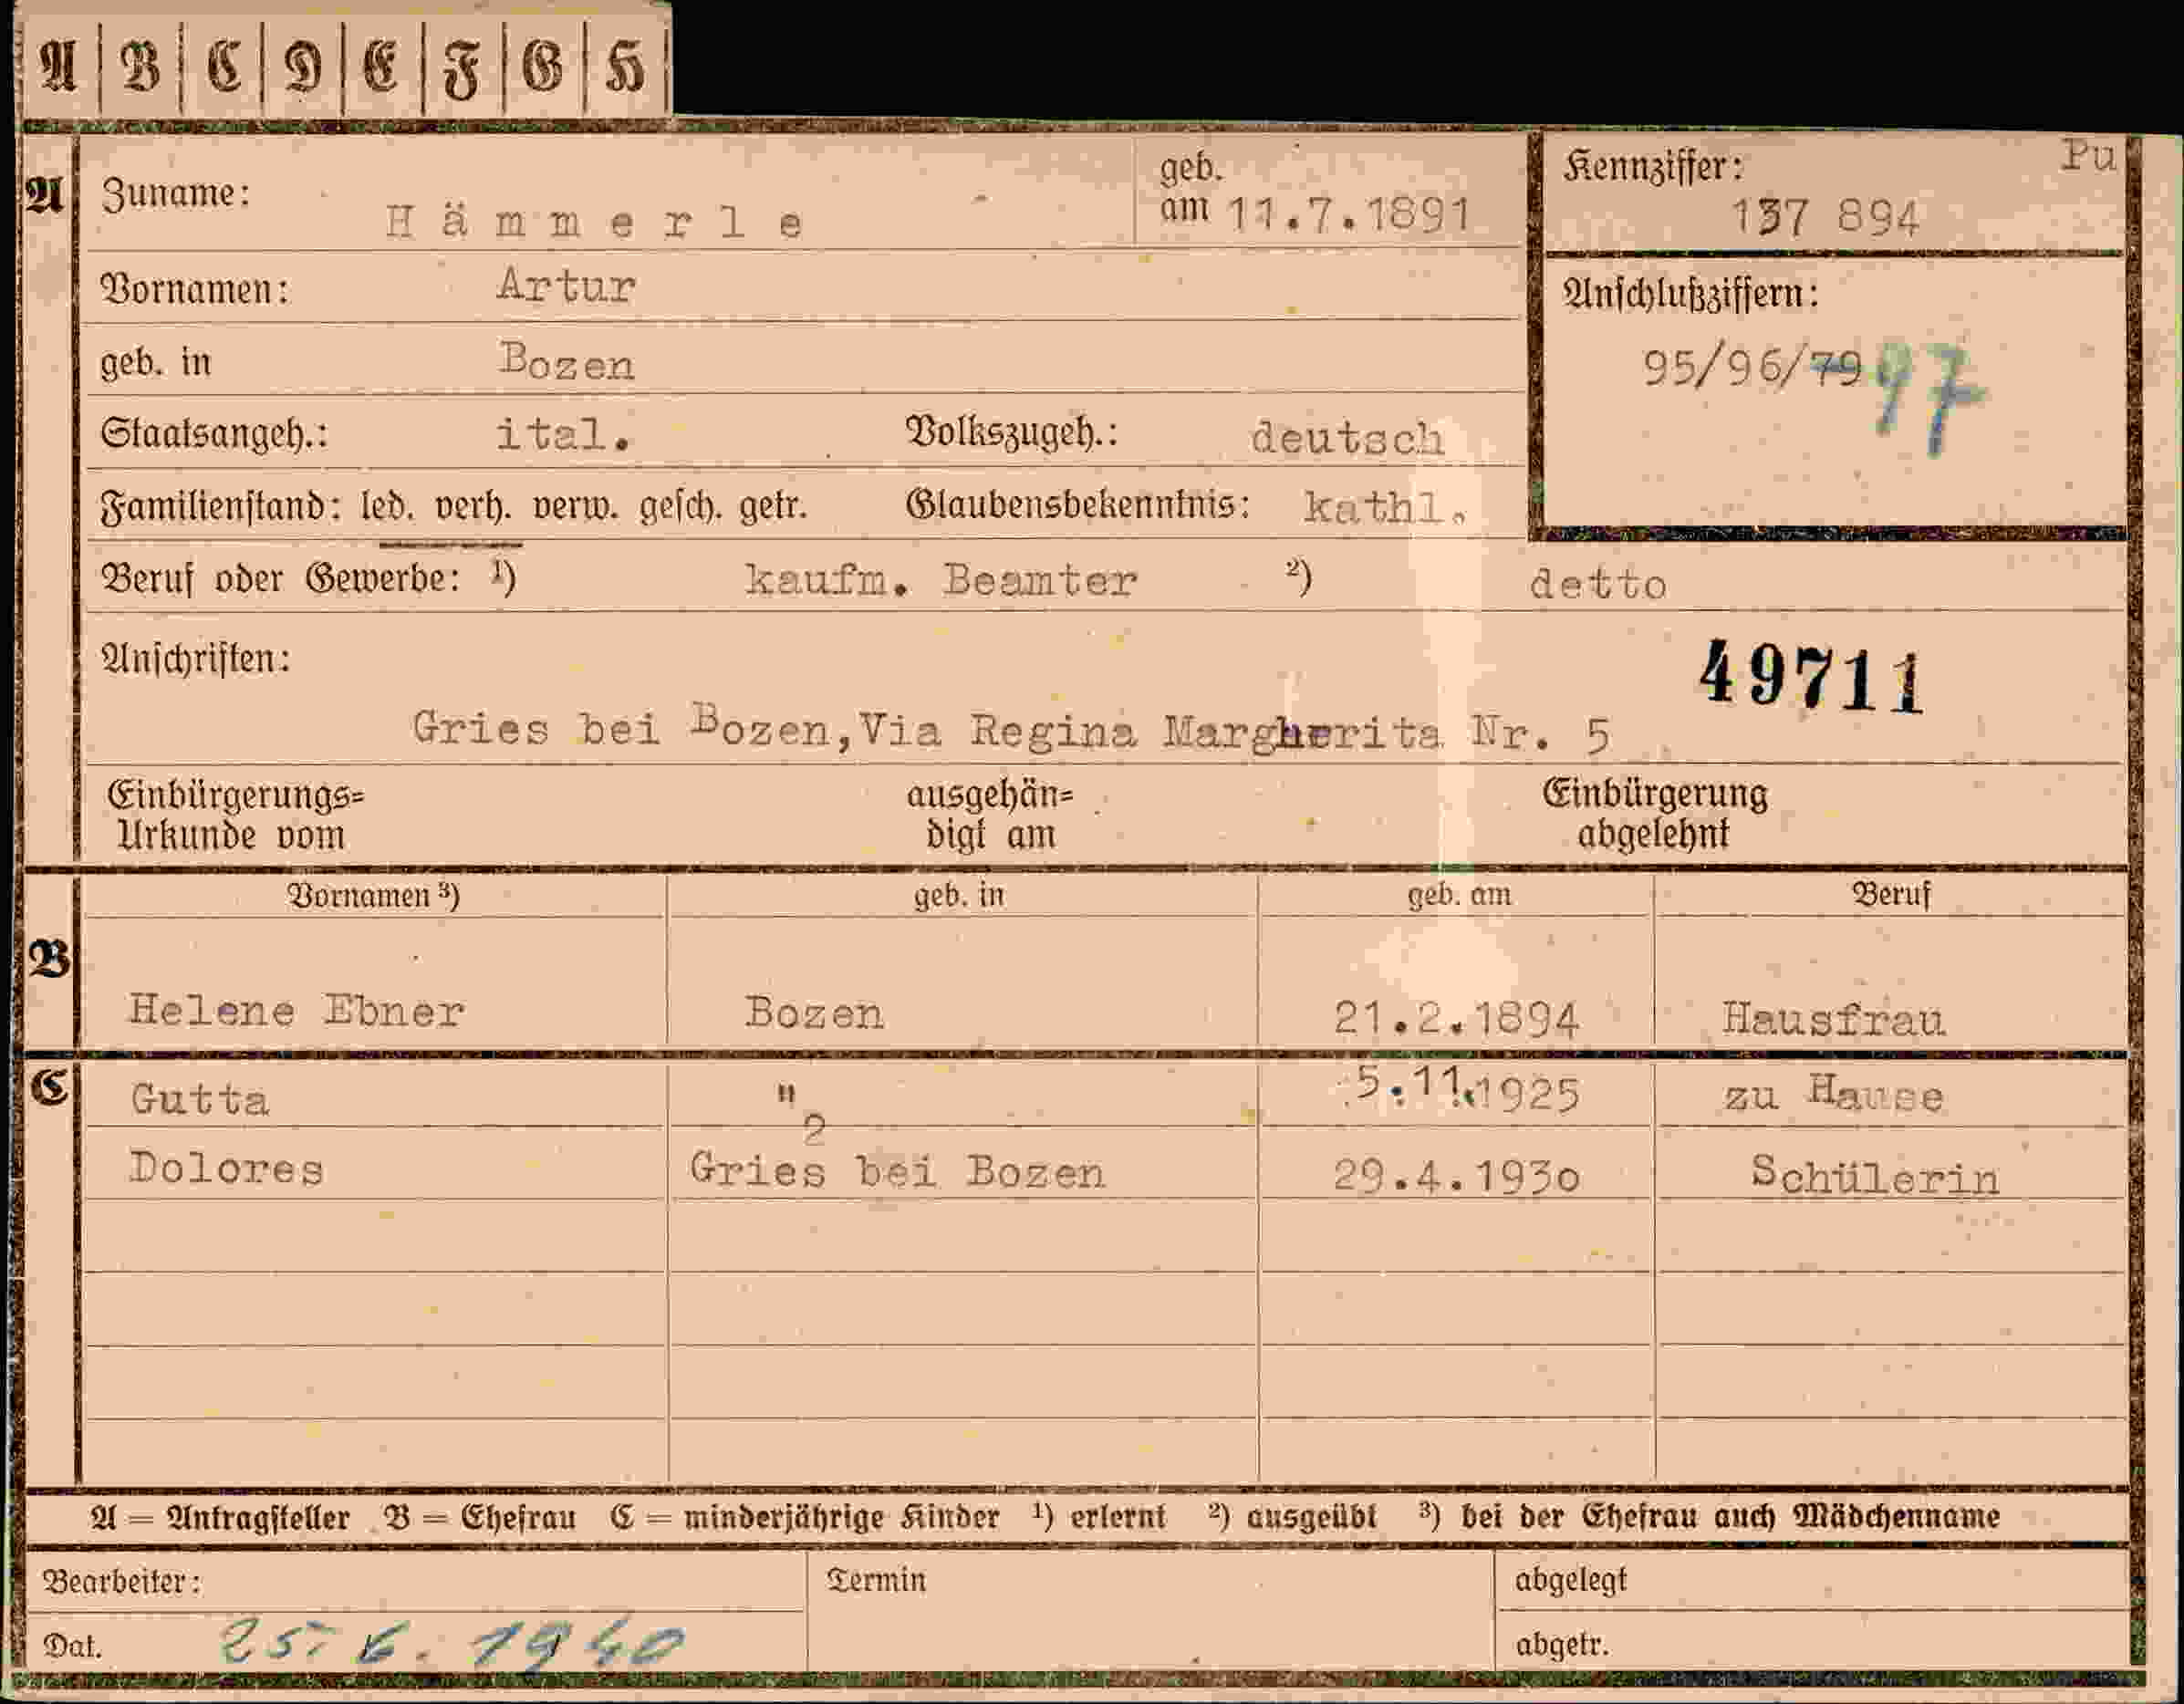 A B C D E F G H
A Zuname: Hämmerle geb. am 11.7.1891 Kennziffer: 137 894 Pu
Vornamen: Artur Anschlußziffern:
geb. in Bozen 95/96/79 97
Staatsangeh.: ital. Volkszugeh.: deutsch
Familienstand: led. verh. verw. gesch. getr. Glaubensbekenntnis: kathl.
Beruf oder Gewerbe: ¹) kaufm. Beamter ²) detto
Anschriften: 49711
Gries bei Bozen,Via Regina Margherita Nr. 5
Einbürgerungs= ausgehän= Einbürgerung
Urkunde vom digt am abgelehnt
Vornamen ³) geb. in geb. am Beruf
B Helene Ebner Bozen 21.2.1894 Hausfrau
C Gutta " 5.11.1925 zu Hause
2
Dolores Gries bei Bozen 29.4.1930 Schülerin
A = Antragsteller B = Ehefrau C = minderjährige Kinder ¹) erlernt ²) ausgeübt ³) bei der Ehefrau auch Mädchenname
Bearbeiter: Termin abgelegt
Dat. 25. 6. 1940 abgetr.